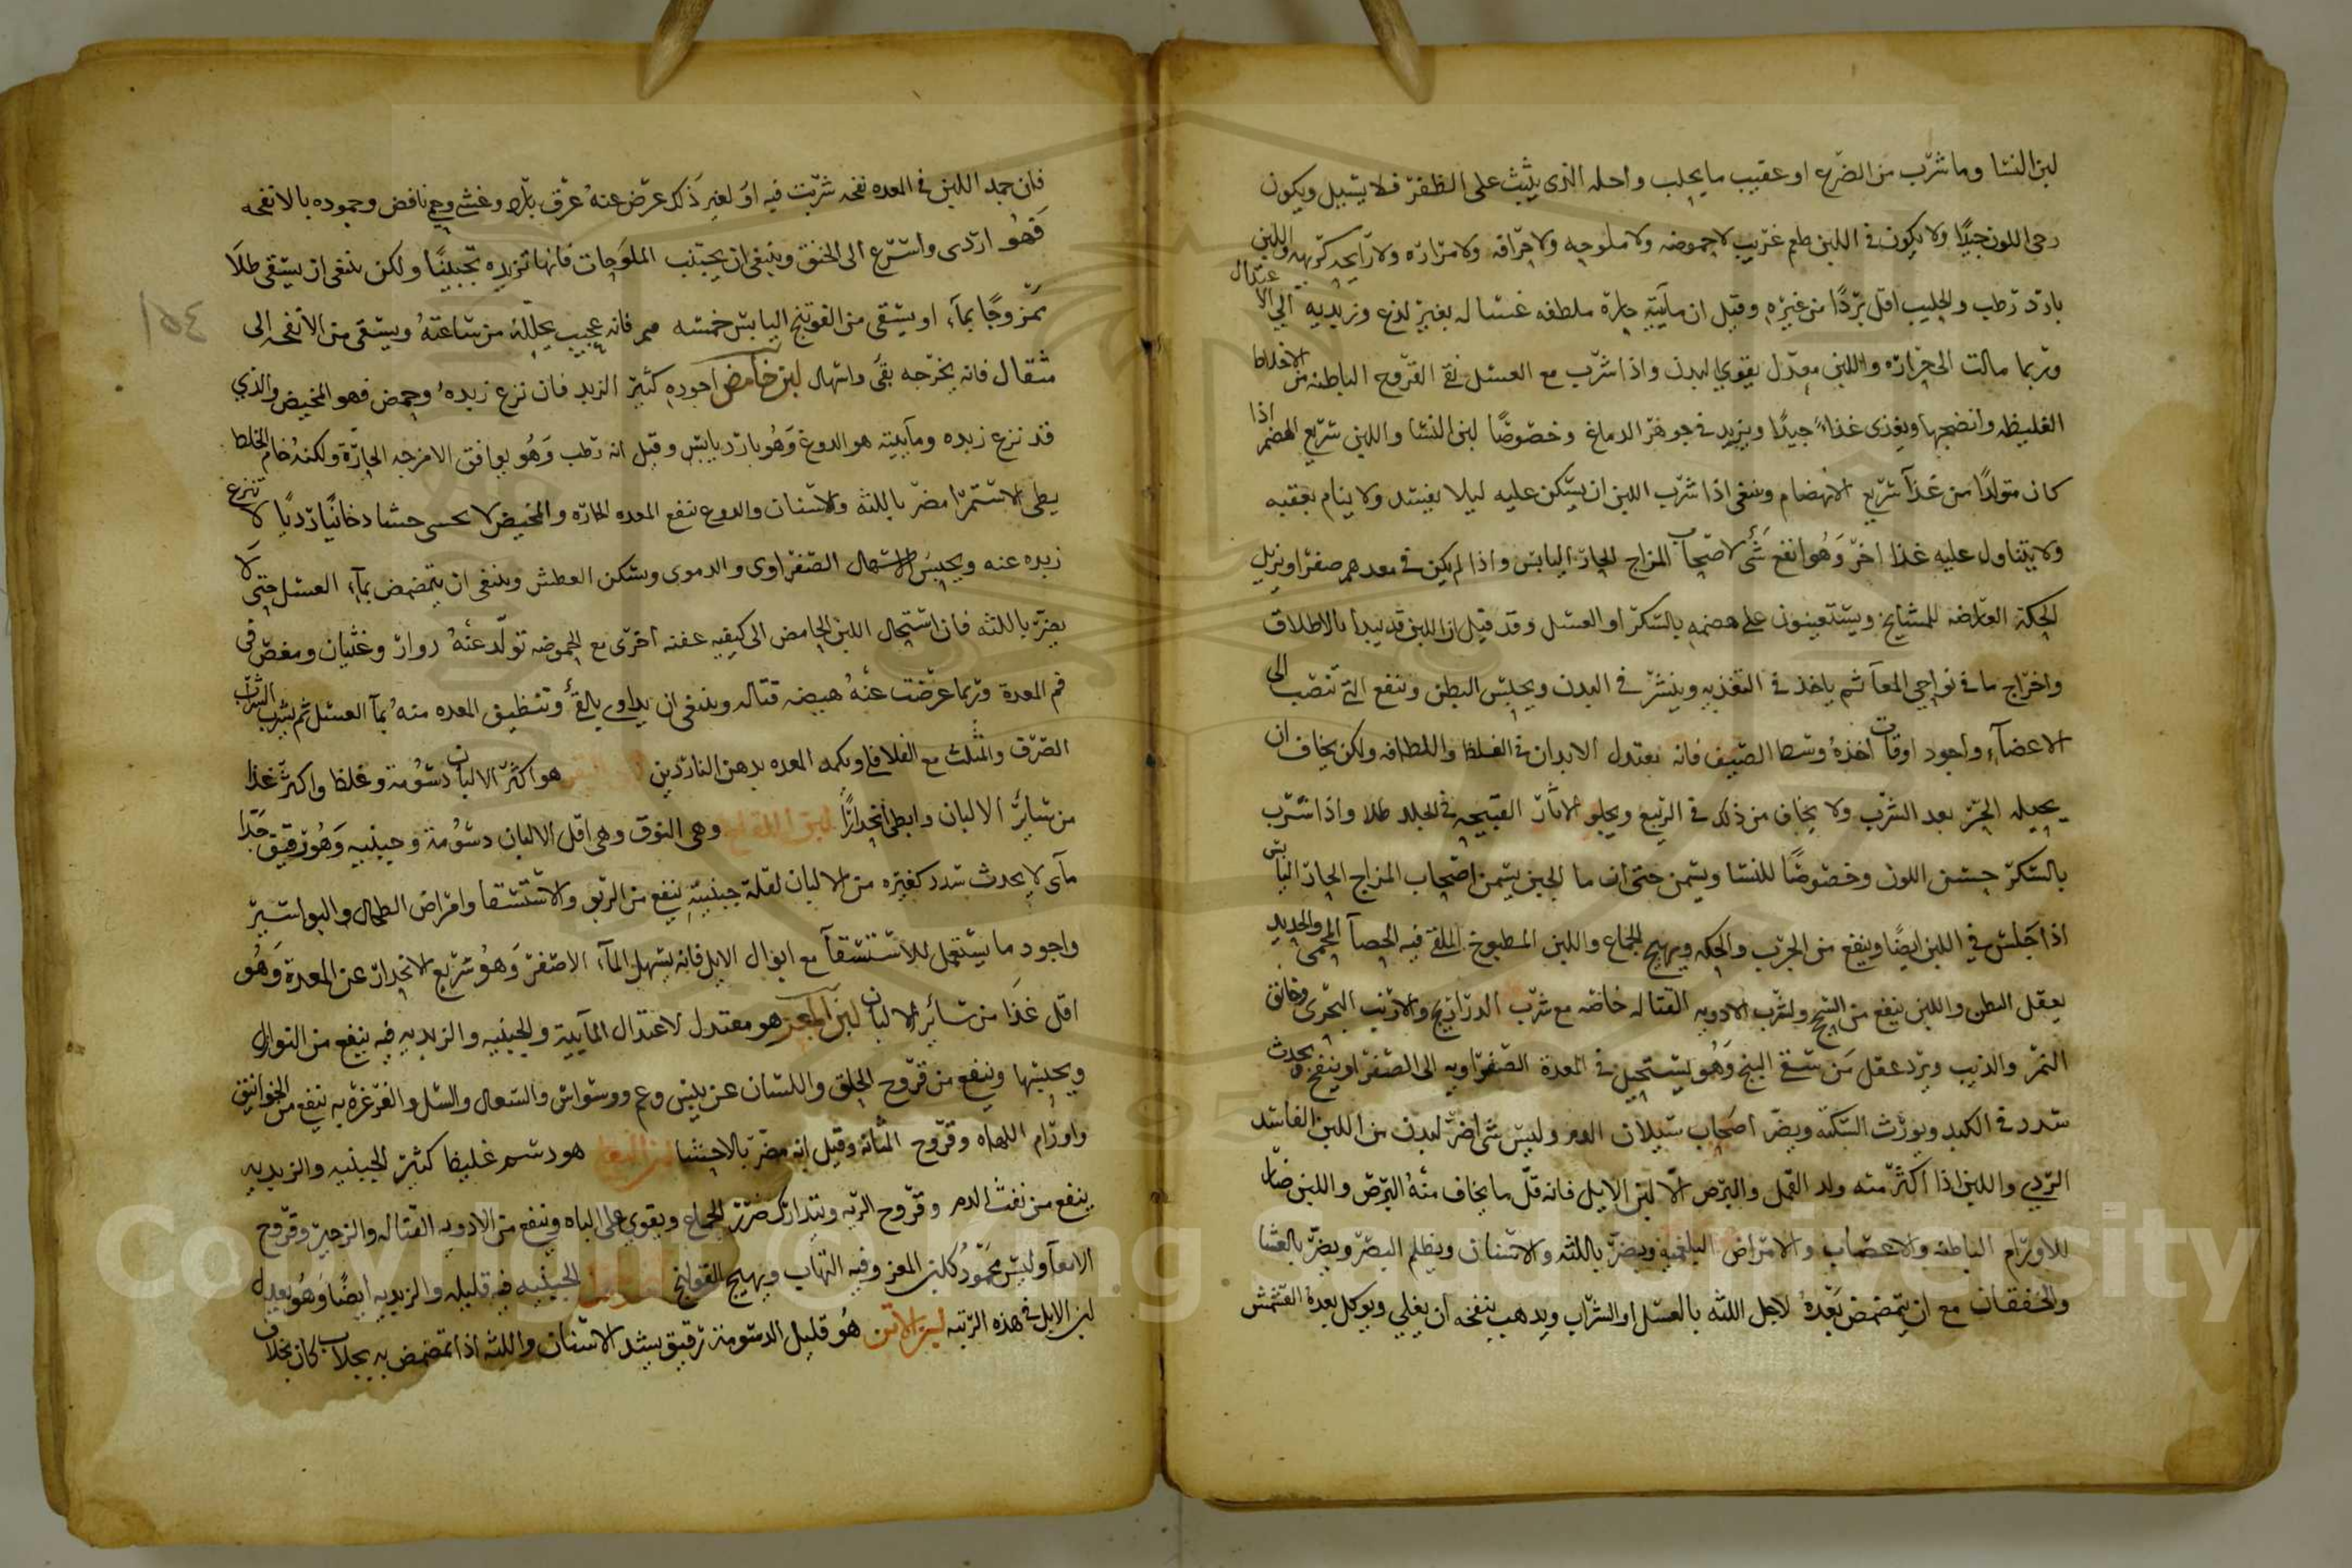 لبن النسا وما شرب من الضرع او عقيب ما يحلب واحله الذى يثبت على الظفر فلا يسيل ويكون
دحى اللون جيدًا ولا يكون في اللبن طعم غريب لا حموضه ولا ملوحه ولا حرافه ولا مراره ولا رايحه كريهه واللبن
بارد رطب والحليب اقل بردًا من غيره وقيل ان مآئيته حارة ملطفه غساله بغير لذع وزبديه الى الاعتدال
وربما مالت الى حراره واللبن معدل يقوي البدن واذا شرب مع العسل نقى القروح الباطنه من الاخلاط
الغليظه وانضجها ويغذى غذاءً جيدًا ويزيد في جوهر الدماغ وخصوصًا لبن النسا واللبن سريع الهضم اذا
كان متولدًا من غذآ سريع الانهضام وينبغى اذا شرب اللبن ان يسكن عليه ليلا يفسد ولا ينام بعقبه
ولا يتناول عليه غذا اخر وَهُو انفع شئ لاصحاب المزاج الحار اليابس واذا لم يكن في معدهم صفرا ويزيل
الحكة العارضه للمشايخ ويستعينون على هضمه بالسكر او العسل وقد قيل ان اللبن قد يبدا بالاطلاق
واخراج ما في نواحي المعآ ثم ياخذ في التغذيه وينشر في البدن ويحبس البطن وينفع التي تنصب الى
الاعضآء واجود اوقات اخذهُ وسط الصيف فانه يعتدل الابدان في الغلظ واللطافه ولكن يخاف ان
يحيله الحر بعد الشرب ولا يخاف من ذلك في الربيع ويجلو الاثار القبيحه في الجلد طلا واذا شرب
بالسكر حسن اللون وخصوصًا للنسا ويسمن حتى ان ما الجبن يسمن اصحاب المزاج الحار اليابس
اذا جَلس في اللبن ايضًا وينفع من الجرب والحكه ويهيج الجماع واللبن المطبوخ الملقى فيه الحصآ المحمى والحديد
يعقل البطن واللبن ينفع من السحج ولشرب الادويه القتاله خاصه مع شرب الدراريح والارنب البحرى وخانق
النمر والذيب ويرد عقل مَن سقى البنج وَهُو يستحيل في المعدة الصفراويه الى الصفرا وينفخ يحدث
سدد في الكبد ويورث السكته ويضر اصحاب سيلان الدم وليس شئ اضر لبدن من اللبن الفاسد
الردي واللبن اذا اكثر منه ولد القمل والبرص الا لبن الابل فانه قلّ ما يخاف منهُ البرص واللبن ضار
للاورام الباطنه والاعصاب والامراض البلغميه ويضر باللثه والاسنان ويظلم البصر ويضر بالعشا
والخفقان مع ان يتمضمض بَعدهُ لاجل اللثه بالعسل او الشراب ويدهب بنفخه ان يغلي ويوكل بعدهُ المشمش
فان جمد اللبن في المعده نفخه شربت فيه اوُ لغير ذَلك عرَض عنهُ عرق بارد وغشي وحمى نافض وجموده بالانفحه
فَهُو اردى واسرع الى الخنق وينبغى ان يجتنب الملوحات فانها تزيده تجبينًا ولكن ينبغى ان يسقى خلًا
ممزوجًا بمآء او يسقى من الفوتنج اليابس خمسه فانه عجيب يحلله من ساعتهُ ويسقى من الانفحه الى
مثقال فانه يخرجه بقئ واسهال لبن حامض اجوده كثير الزبد فان نزع زبدهُ وحمض فهو المخيض والذي
قد نزع زبده ومآئيته هو الدوغ وَهُو بارد يابس وقيل انه رطب وَهُو يوافق الامزجه الحارّة ولكنهُ خام الخلط
بطى الاستمرا مضر باللثه والاسنان والدوع ينفع المعده الحاره والمخيض لا يحسى حشا دخانيًا رديًا لا تنزع
زبده عنه ويحبس الاسهال الصفراوى والدموى ويسكن العطش وينبغى ان يتمضمض بمآء العسل حتى لا
يضر باللثه فان استحال اللبن الحامض الى كيفيه عفنه اخرى مع الحموضه تولّد عنهُ دوار وغثيان ومغص في
فم المعدة وربما عرضت عنهُ هيضه قتاله وينبغى ان يداوى بالقئ وتنظيف المعده منهُ بمآ العسل ثم يشرب الشراب
الصرف والمثلث مع الفلافلي ويكمد المعده بدهن الناردين لبن البقر هو اكثر الالبان دسُومة وغلظا واكثر غذا
من سائر الالبان وابطى انحدارًا لبن اللقاح وهى النوق وهى اقل الالبان دسُومة وجبنيه وَهُو رقيق جَدا
مآى لا يحدث سدد كغيره من الالبان لقلة جبنيته ينفع من الربو والاستسقا وامراض الطحال والبواسير
واجود ما يستعمل للاستسقآ مع ابوال الابل فانه يسهل المآء الاصفر وَهُو سريع الانحدار عن المعدة وَهُو
اقل غذَا من سائر الالبان لبن المعز هو معتدل لاعتدال المآئية والجبنيه والزبديه فيه ينفع من النوازل
ويحبسها وينفع من قروح الحلق واللسان عن يبس وغم ووسواس والسعال والسل والغرغره به ينفع من الخوانيق
واورام اللهاه وقروح المثانه وقيل انه مضر بالاحشا لبن النعاج هو دسم غليظ كثير الجبنيه والزبديه
ينفع من نفث الدم وقروح الريه ويتدارك ضرر الجماع ويقوي على الباه وينفع من الادويه القتاله والزحير وقروح
الامعآ وليس محمُود كلبن المعز وفيه التهاب ويهيج القولنج الجبنيه فيه قليله والزبديه ايضًا وَهُو يعدل
لبن الابل في هذه الرتبه لبن الاتن هُو قليل الدسومة رقيق يشد الاسنان واللثه اذا تمضمض به بخلاف
١٥٤